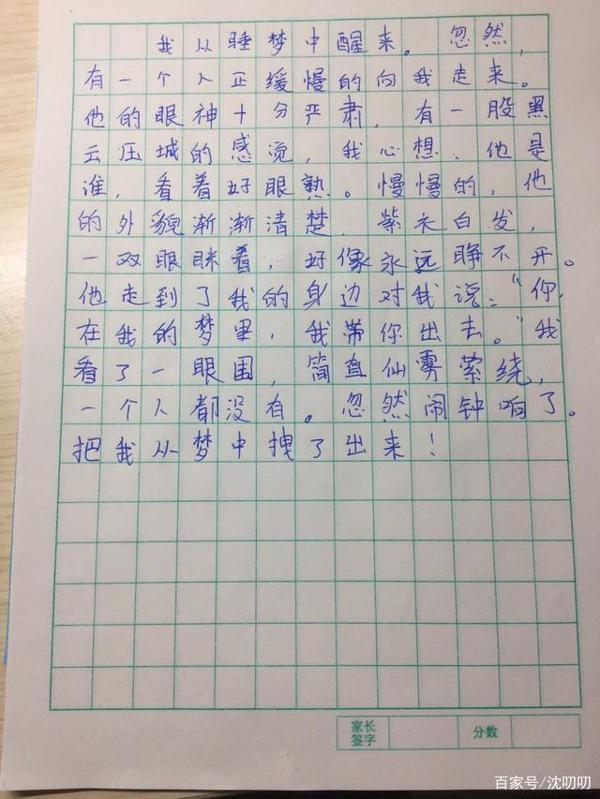 我从睡梦中醒来。忽然,
有一个人正缓慢的向我走来。
他的眼神十分严肃,有一股黑
云压城的感觉,我心想、他是
谁,看着好眼熟。慢慢的,他
的外貌渐渐清楚,紫衣白发,
一双眼眯着,好像永远睁不开。
他走到了我的身边对我说:“你
在我的梦里,我带你出去。”我
看了一眼围,简直仙雾萦绕,
一个人都没有。忽然闹钟响了。
把我从梦中拽了出来!
家长
签字
分数
百家号/沈叨叨